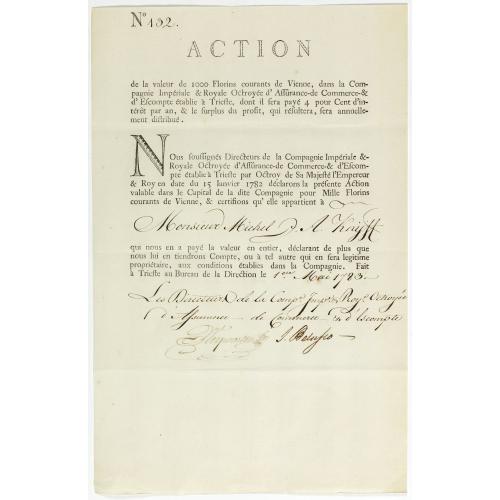 Nº 132.
ACTION
de la valeur de 1000 Florins courants de Vienne, dans la Com-
pagnie Impériale & Royale Octroyée d'Assurance-de Commerce-&
d'Escompte établie à Trieste, dont il sera payé 4 pour Cent d'in-
térêt par an, & le surplus du profit, qui résultera, sera annuelle-
ment distribué.
NOus soussignés Directeurs de la Compagnie Impériale &-
Royale Octroyée d'Assurance-de Commerce-& d'Escom-
pte établie à Trieste par Octroy de Sa Majesté l'Empereur
& Roy en date du 15 Janvier 1782 déclarons la présente Action
valable dans le Capital de la dite Compagnie pour Mille Florins
courants de Vienne, & certifions qu'elle appartient à
Monsieur Michel J. A. Knyff
qui nous en a payé la valeur en entier, déclarant de plus que
nous lui en tiendrons Compte, ou à tel autre qui en sera legitime
propriétaire, aux conditions établies dans la Compagnie. Fait
à Trieste au Bureau de la Direction le 1er Mai 1783.
Les Directeurs de la Comp. Imp. & Roy. Octroyée
d'Assurance de Commerce & d'Escompte